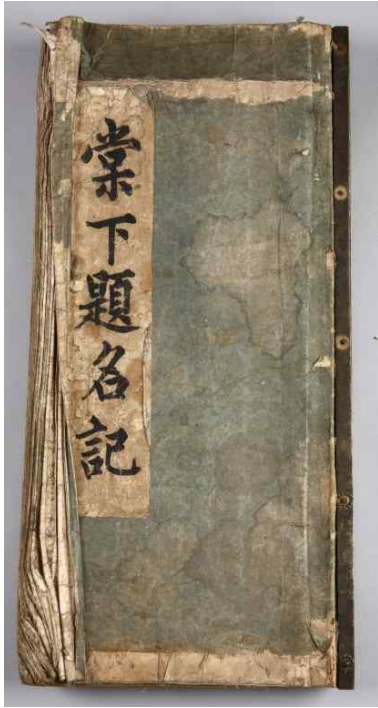 棠下題名記